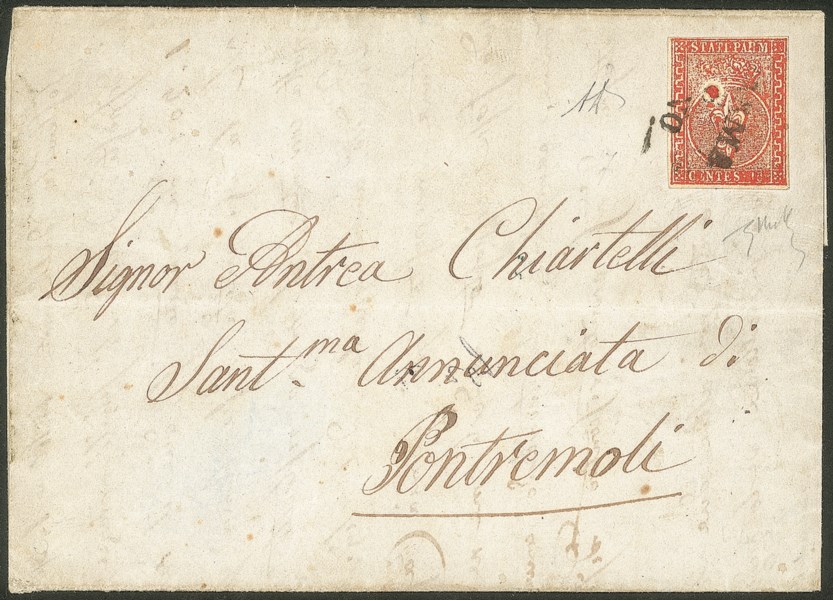 STATI PARM
CENTES. 15
Signor Antrea Chiartelli
Sant.ma Annunciata di
Pontremoli